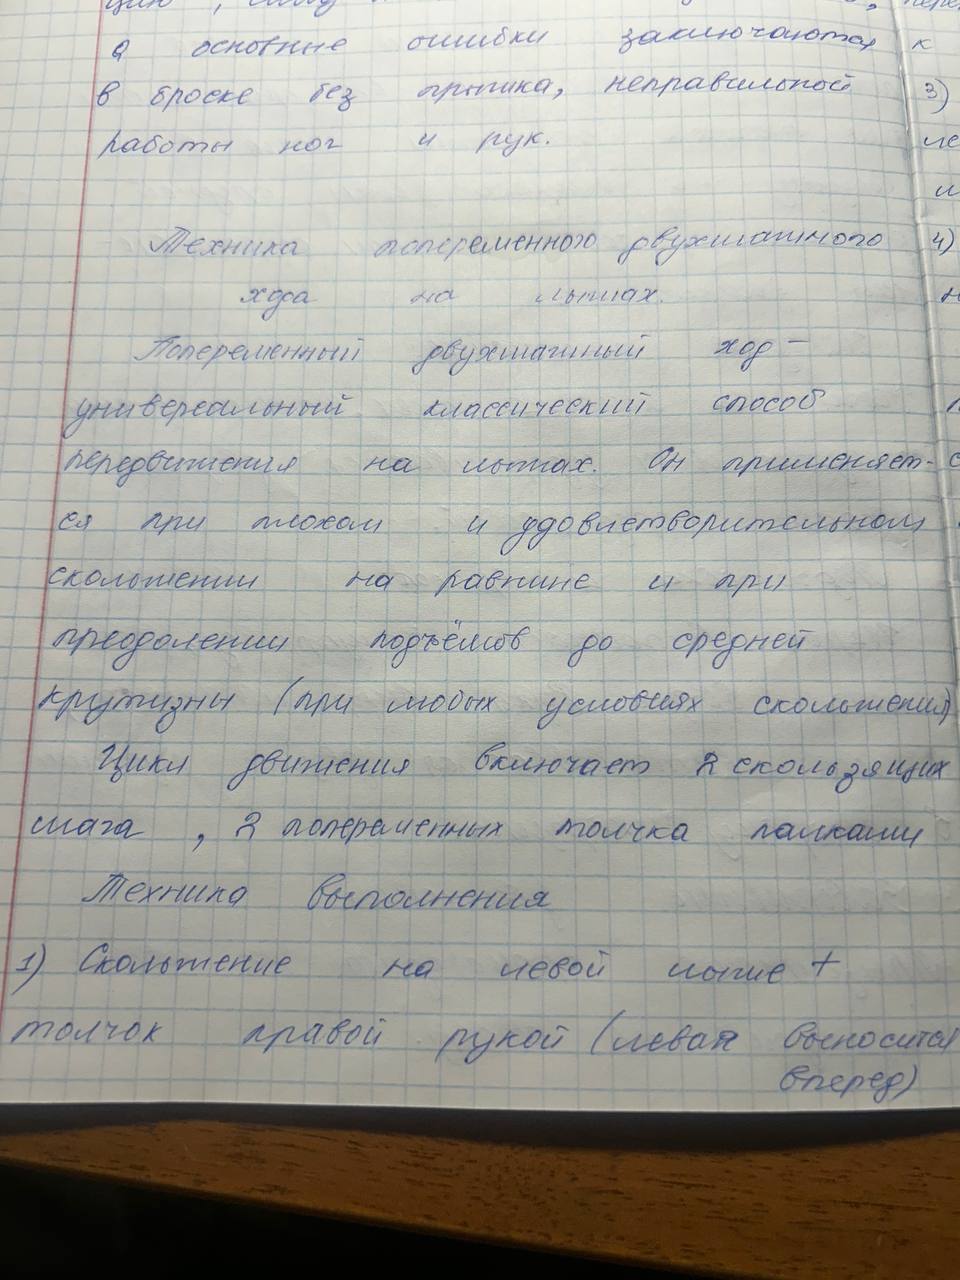 а основные ошибки заключаются
в броске без прыжка, неправильной
работы ног и рук.
Техника попеременного двухшажного
хода на лыжах.
Попеременный двухшажный ход –
универсальный классический способ
передвижения на лыжах. Он применяет-
ся при плохом и удовлетворительном
скольжении на равнине и при
преодолении подъёмов до средней
крутизны (при любых условиях скольжения)
Цикл движения включает 2 скользящих
шага, 2 попеременных толчка палками
Техника выполнения
1) Скольжение на левой лыже +
толчок правой рукой (левая выносится
вперед)
к
3)
4)